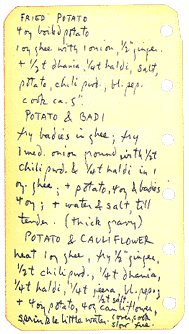 FRIED POTATO
4 oz boiled potato
1 oz ghee with 1 onion, ½" ginger.
+ ½ t dhania, ¼ t haldi, salt
potato, chili pwd., bl. pep.
cook ca. 5".
POTATO & BADI
fry badies in ghee; fry
1 med. onion ground with ½ t
chili pwd. & ¼ t haldi in 1
oz. ghee; + potato, 4 oz & badies
4 oz; + water & salt till
tender. (thick gravy)
POTATO & CAULIFLOWER
heat 1 oz ghee, fry ½" ginger,
½ t chili pwd., ¼ t dhania,
¼ t haldi, ¼ t jeera, bl. pep.,
½ t salt
+ 4 oz potato, 4 oz cauliflower,
sprinkle little water. cover, cook
slow fire.